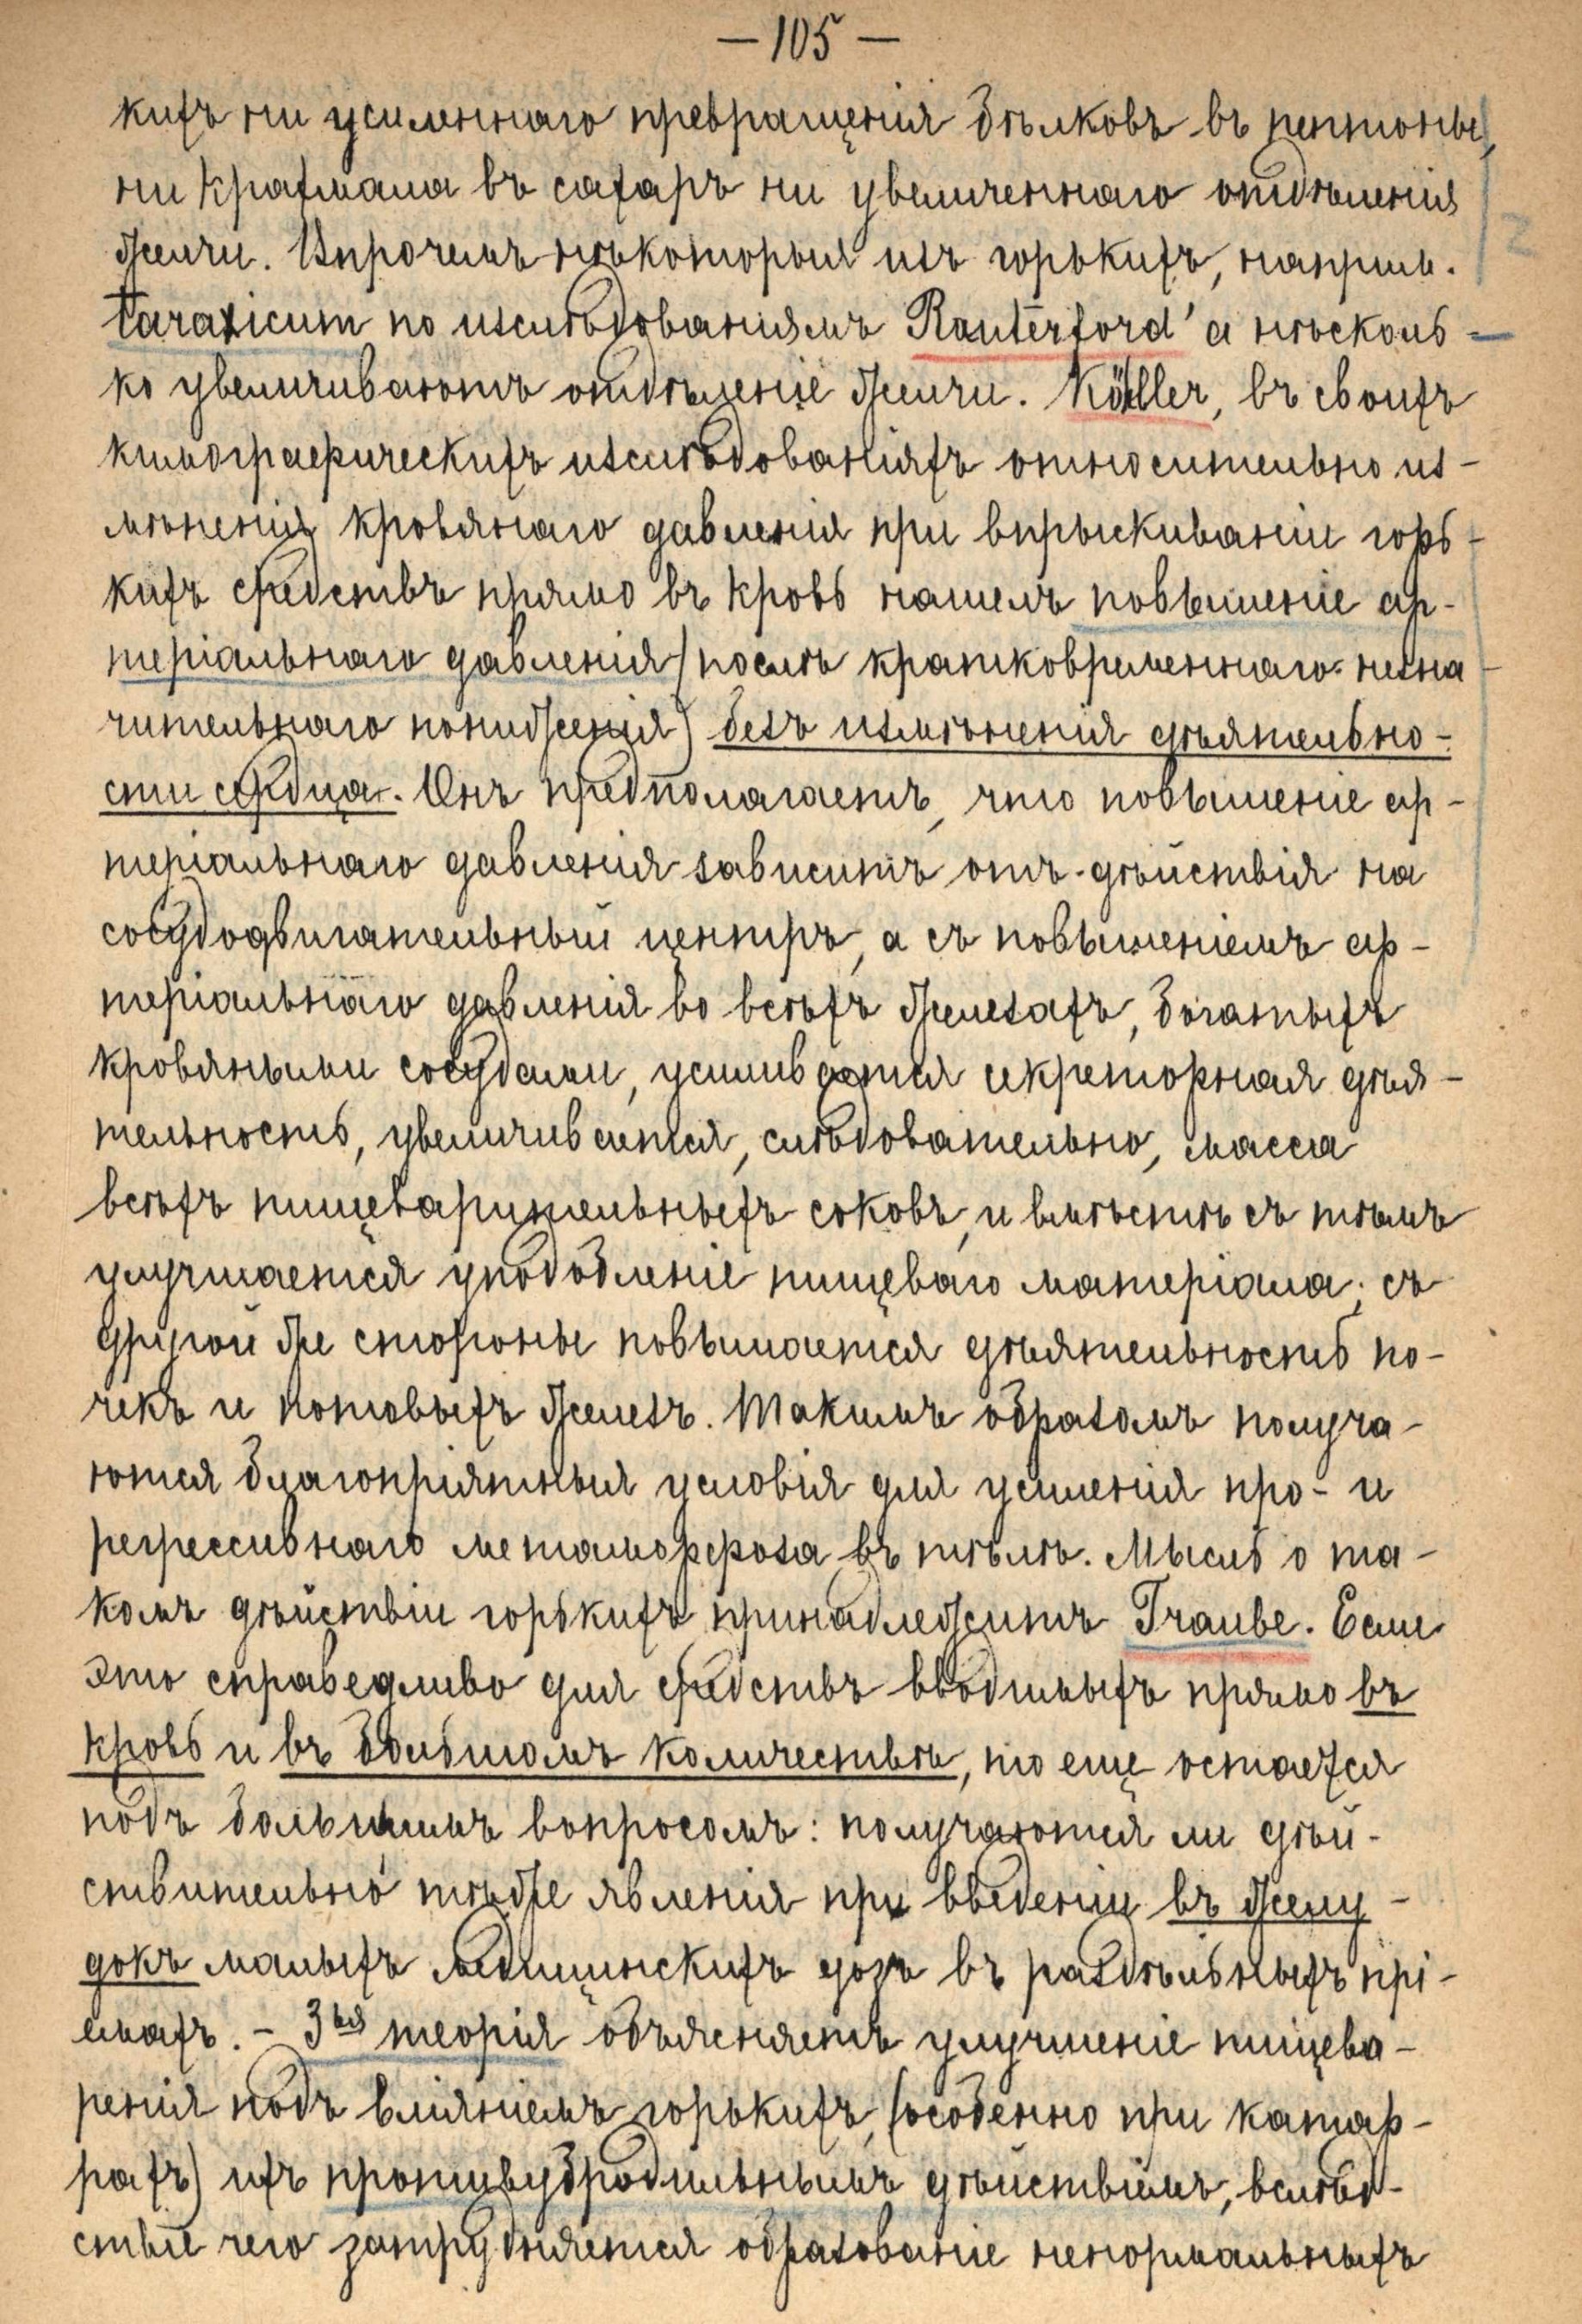 — 105 —
кихъ ни усиленнаго превращенія бѣлковъ въ пептоны,
ни крахмала въ сахаръ ни увеличеннаго отдѣленія
желчи. Впрочемъ нѣкоторыя изъ горькихъ, наприм.
taraxicum по изслѣдованіямъ Rauterford'a нѣсколь-
ко увеличиваютъ отдѣленіе желчи. Köhler, въ своихъ
кимографическихъ изслѣдованіяхъ относительно из-
мѣненія кровянаго давленія при впрыскиваніи горь-
кихъ средствъ прямо въ кровь нашелъ повышеніе ар-
теріальнаго давленія (послѣ кратковременнаго незна
чительнаго пониженія) безъ измѣненія дѣятельно-
сти сердца. Онъ предполагаетъ, что повышеніе ар-
теріальнаго давленія зависитъ отъ дѣйствія на
сосудодвигательный центръ, а съ повышеніемъ ар-
теріальнаго давленія во всѣхъ железахъ, богатыхъ
кровяными сосудами, усиливается секреторная дѣя-
тельность, увеличивается, слѣдовательно, масса
всѣхъ пищеварительныхъ соковъ, и вмѣстѣ съ тѣмъ
улучшается уподобленіе пищеваго матеріала; съ
другой же стороны повышается дѣятельность по-
чекъ и потовыхъ железъ. Такимъ образомъ получа-
ются благопріятныя условія для усиленія про- и
регрессивнаго метаморфоза въ тѣлѣ. Мысль о та-
комъ дѣйствіи горькихъ принадлежитъ Traube. Если
это справедливо для средствъ вводимыхъ прямо въ
кровь и въ большомъ количествѣ, то еще остается
подъ большимъ вопросомъ: получаются ли дѣй-
ствительно тѣже явленія при введеніи въ желу-
докъ малыхъ медицинскихъ дозъ въ раздѣльныхъ прі-
емахъ. – 3ья теорія объясняетъ улучшеніе пищева-
ренія подъ вліяніемъ горькихъ, (особенно при катар-
рахъ) ихъ противубродильнымъ дѣйствіемъ, вслѣд-
ствіе чего затрудняется образованіе ненормальныхъ